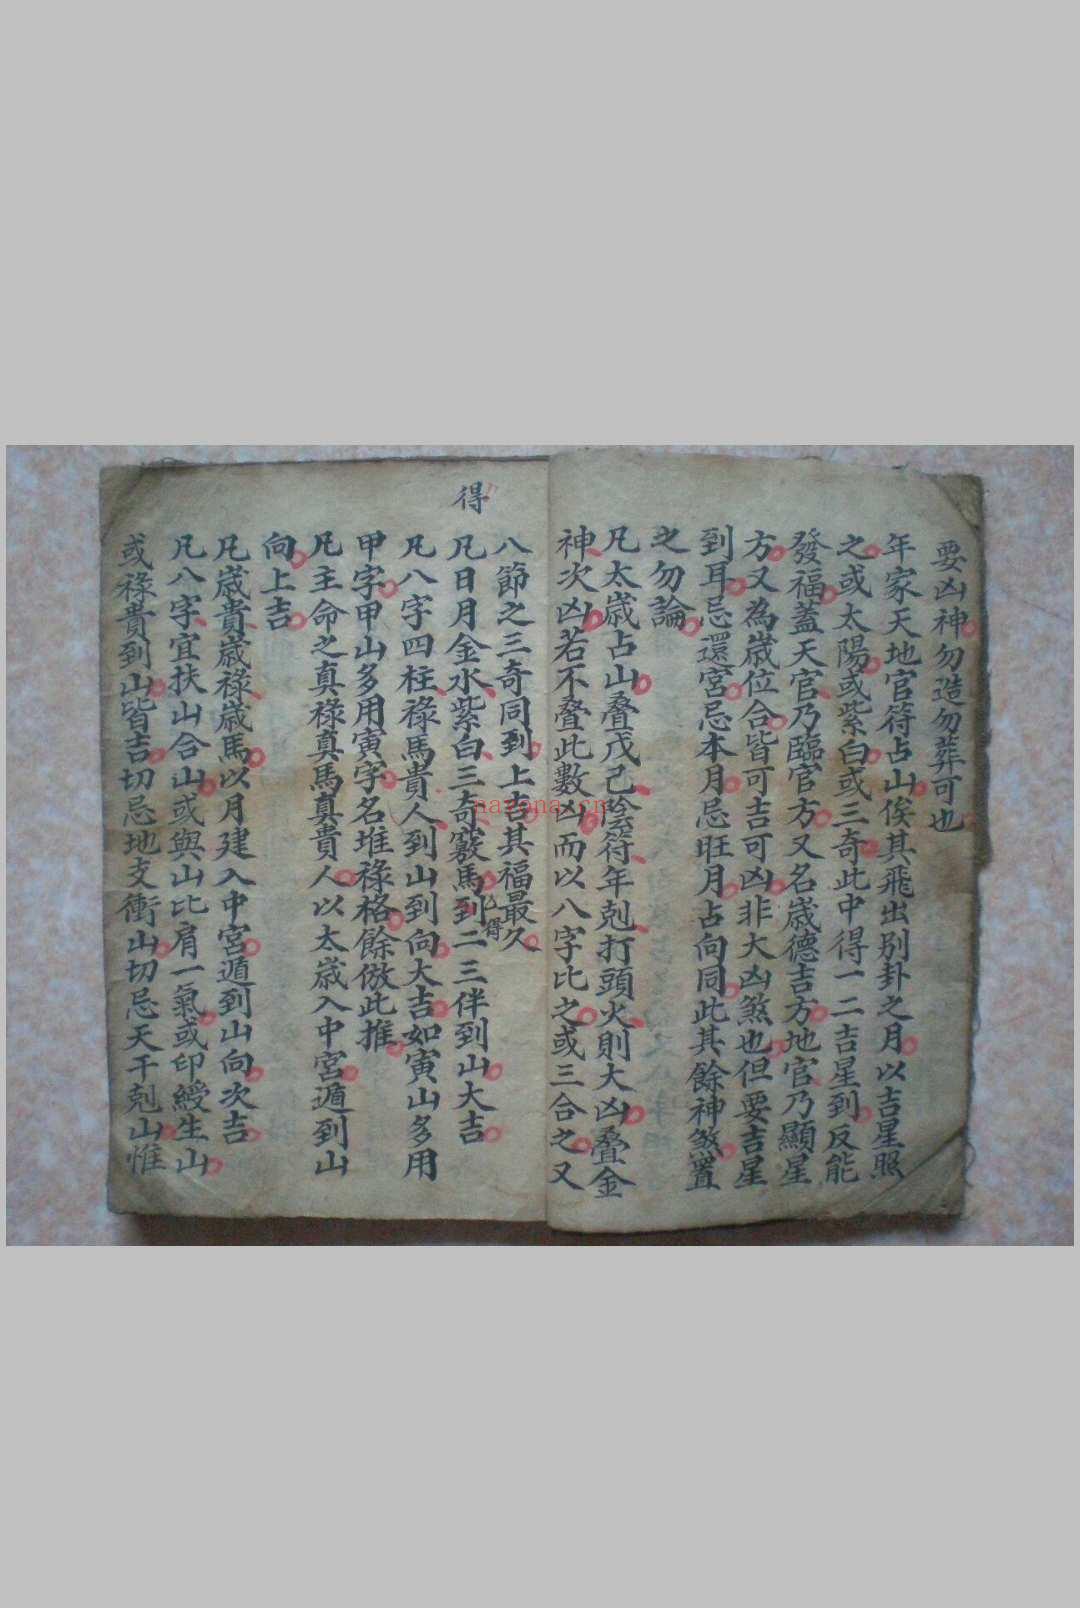 要凶神勿造勿葬可也
年家天地官符占山俟其飛出别卦之月以吉星照
之或太陽或紫白或三奇此中得一二吉星到反能
發福蓋天官乃臨官方又名歳德吉方地官乃顯星
方又為歳位合皆可吉可凶非大凶煞也但要吉星
到耳忌還宮忌本月忌旺月占向同此其餘神煞置
之勿論
凡太歳占山叠戊己陰符年剋打頭火則大凶叠金
神次凶若不叠此數凶而以八字比之或三合之又
得
八節之三奇同到上吉其福最久
凡日月金水紫白三奇竅馬到二三伴到山大吉
得
凡八字四柱祿馬貴人到山到向大吉如寅山多用
甲字甲山多用寅字名堆祿格餘倣此推
凡主命之真祿真馬真貴人以太歳入中宮遁到山
向上吉
凡歳貴歳祿歳馬以月建入中宮遁到山向次吉
凡八字宜扶山合山或與山比肩一氣或印綬生山
或祿貴到山皆吉切忌地支衝山切忌天干剋山惟
nayona.cn